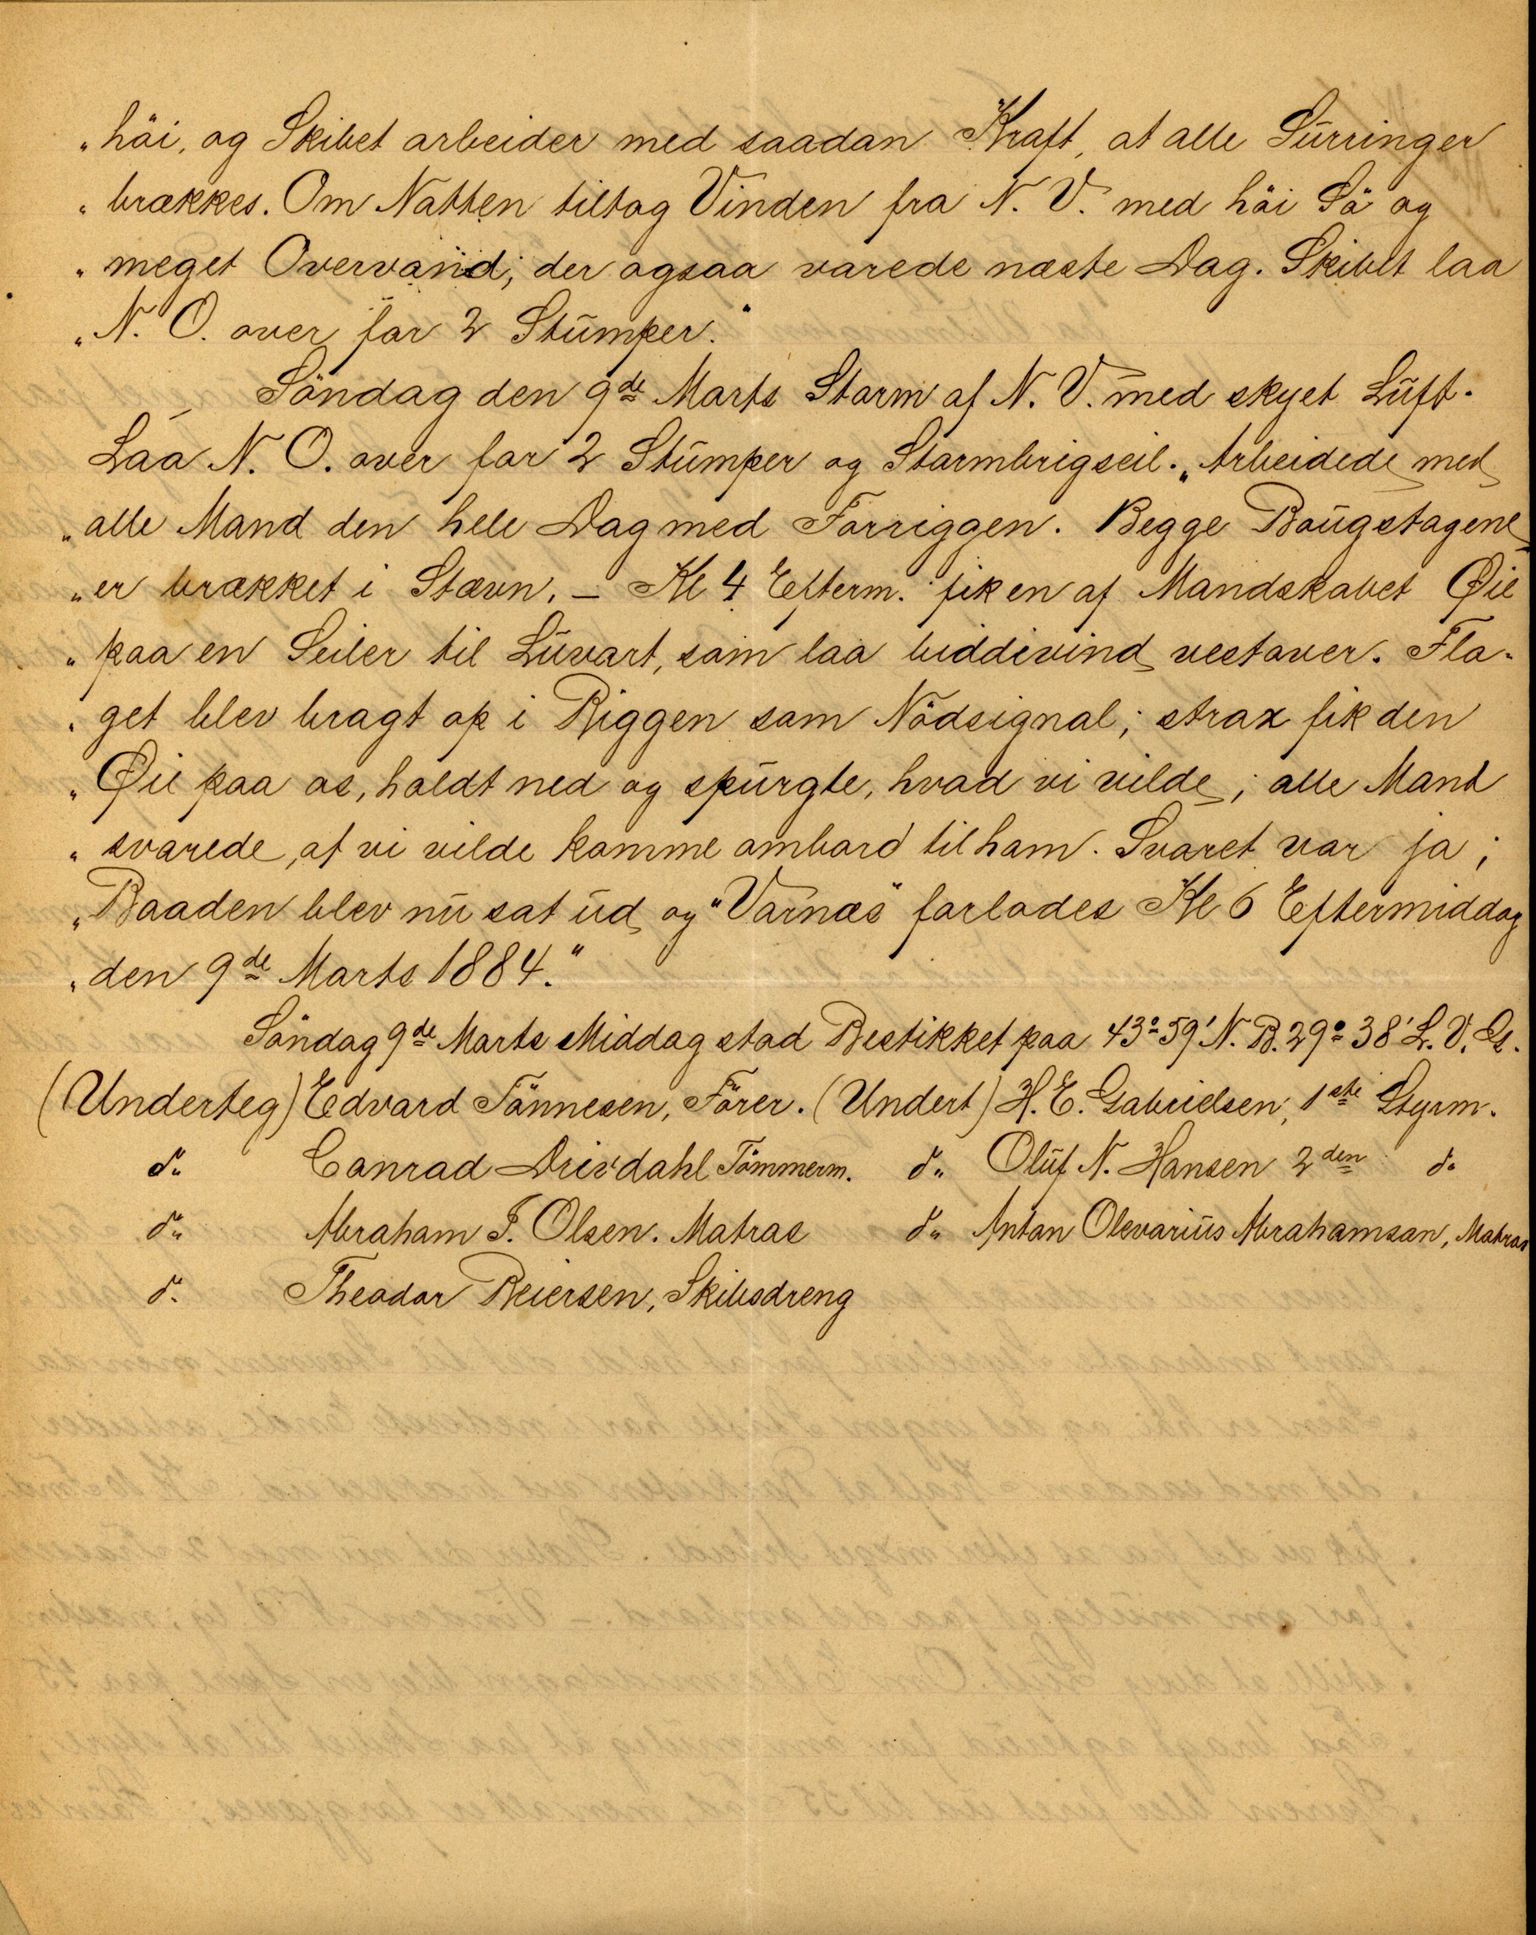 „höi, og Skibet arbeider med saadan Kraft, at alle Surringer
„brækkes. Om Natten tiltog Vinden fra N. V. med höi Sö og
„meget Overvand; der ogsaa varede næste Dag. Skibet laa
„N. O. over for 2 Stumper."
Söndag den 9de Marts Storm af N. V. med skyet Luft.
Laa N. O. over for 2 Stumper og Stormbrigseil. „Arbeidede med
„alle Mand den hele Dag med Forriggen. Begge Bougstagene
„er brækket i Stævn. – Kl 4 Efterm. fik en af Mandskabet Øie
„paa en Seiler til Luvart, som laa biddevind vestover. Fla-
„get blev bragt op i Riggen som Nödsignal; strax fik den
„Øie paa os, holdt ned og spurgte, hvad vi vilde; alle Mand
„svarede, at vi vilde komme ombord til ham. Svaret var ja;
„Baaden blev nu sat ud og "Varnæs" forlodes Kl 6 Eftermiddag
„den 9de Marts 1884."
Söndag 9de Marts Middag stod Bestikket paa 43° 59' N. B. 29° 38' L. V. G.
(Underteg) Edvard Tönnesen, Förer. (Undert) H. E. Gabrielsen, 1ste Styrm.
do Conrad Drivdahl Tömmerm. do Oluf N. Hansen 2den do
do Abraham T. Olsen. Matros do Anton Olevarius Abrahamson, Matros
do Theodor Reiersen, Skibsdreng